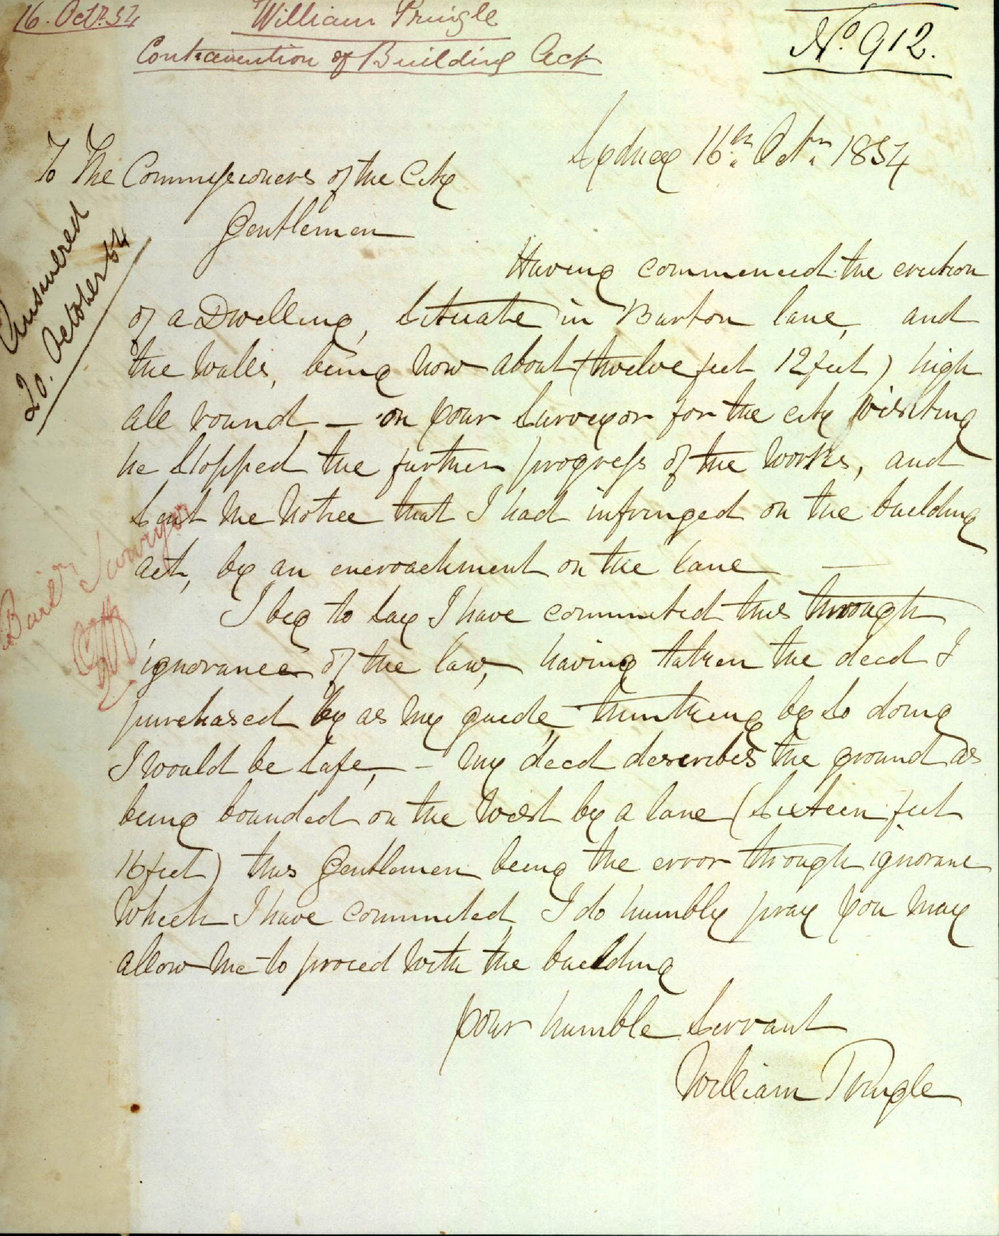 16. Octr. 54
William Pringle
Contravention of Building Act
No 912.
Sydney 16th Octr. 1854
To The Commissioners of the City
Gentlemen
Answered
20. October 54
Having commenced the erection
of a Dwelling, Situate in Burton lane, and
the walls, being now about (twelve feet 12 feet) high
all round, — on your Surveyor for the city visiting
he Stopped the further progress of the works, and
Sent me Notice that I had infringed on the building
act, by an encroachment on the lane —
I beg to Say I have committed this through
ignorance of the law, having taken the deed I
purchased by as my guide, thinking by So doing
I would be Safe, — my deed describes the ground as
being bounded on the West by a lane (Sixteen feet
16 feet) this Gentlemen being the error through ignorance
which I have commited, I do humbly pray you may
allow me to proced with the building
your humble Servant
William Pringle
Surveyor